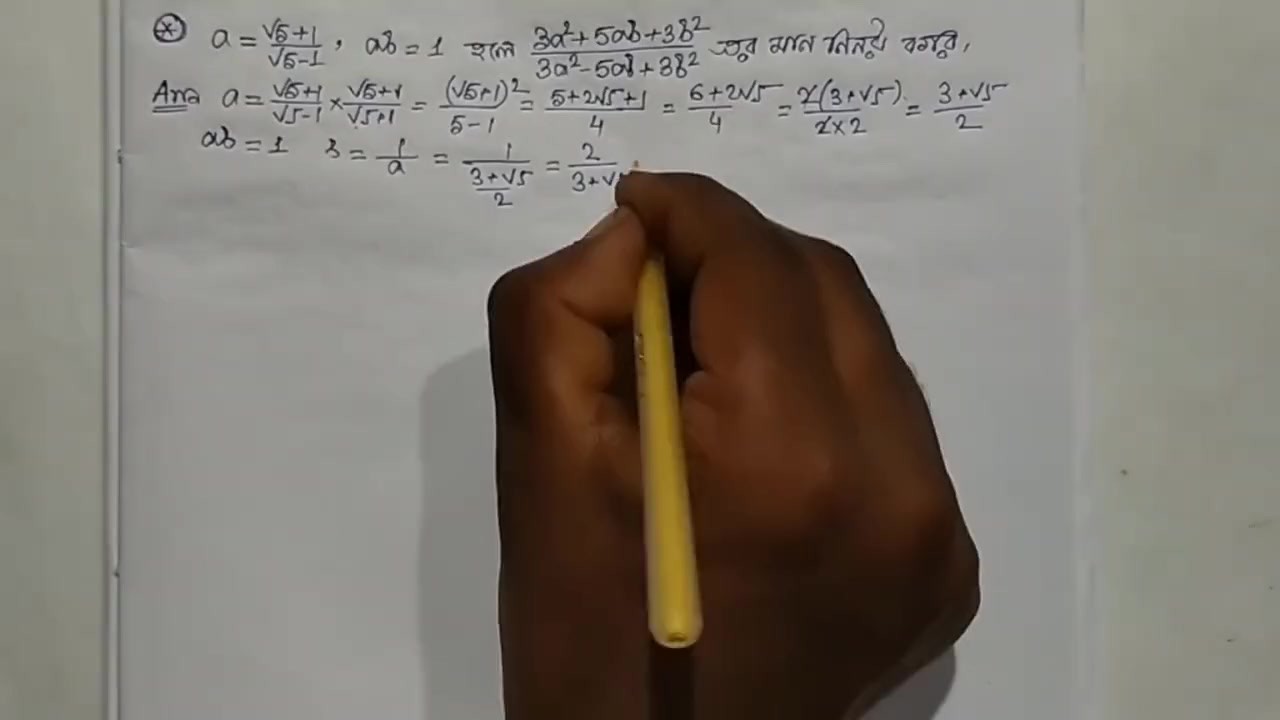 ⊛ a = (√5+1)/(√5-1), ab = 1 হলে (3a²+5ab+3b²)/(3a²-5ab+3b²) এর মান নির্ণয় করি,
Ans a = (√5+1)/(√5-1) × (√5+1)/(√5+1) = (√5+1)²/(5-1) = (5+2√5+1)/4 = (6+2√5)/4 = 2(3+√5)/(2×2) = (3+√5)/2
ab = 1 b = 1/a = 1/((3+√5)/2) = 2/(3+√